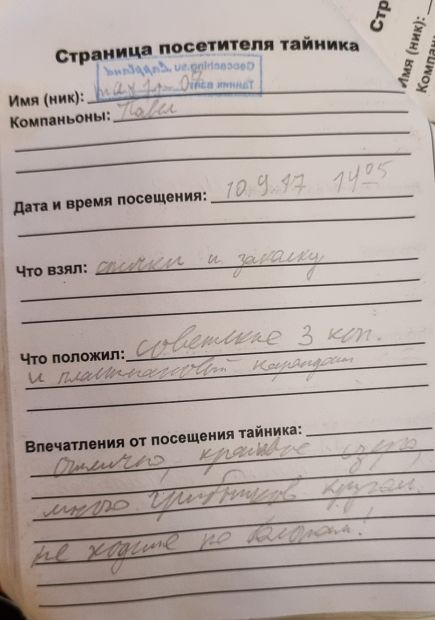 Страница посетителя тайника
Имя (ник):
Компаньоны: Павел
Дата и время посещения: 10.9.17 14 05
Что взял: спички и закалку
Что положил: советские 3 коп.
и пластиковый карандаш
Впечатления от посещения тайника:
Отлично, красивое озеро,
много грибников кругом
не ходите по
Стр
Имя (ник):
Компань